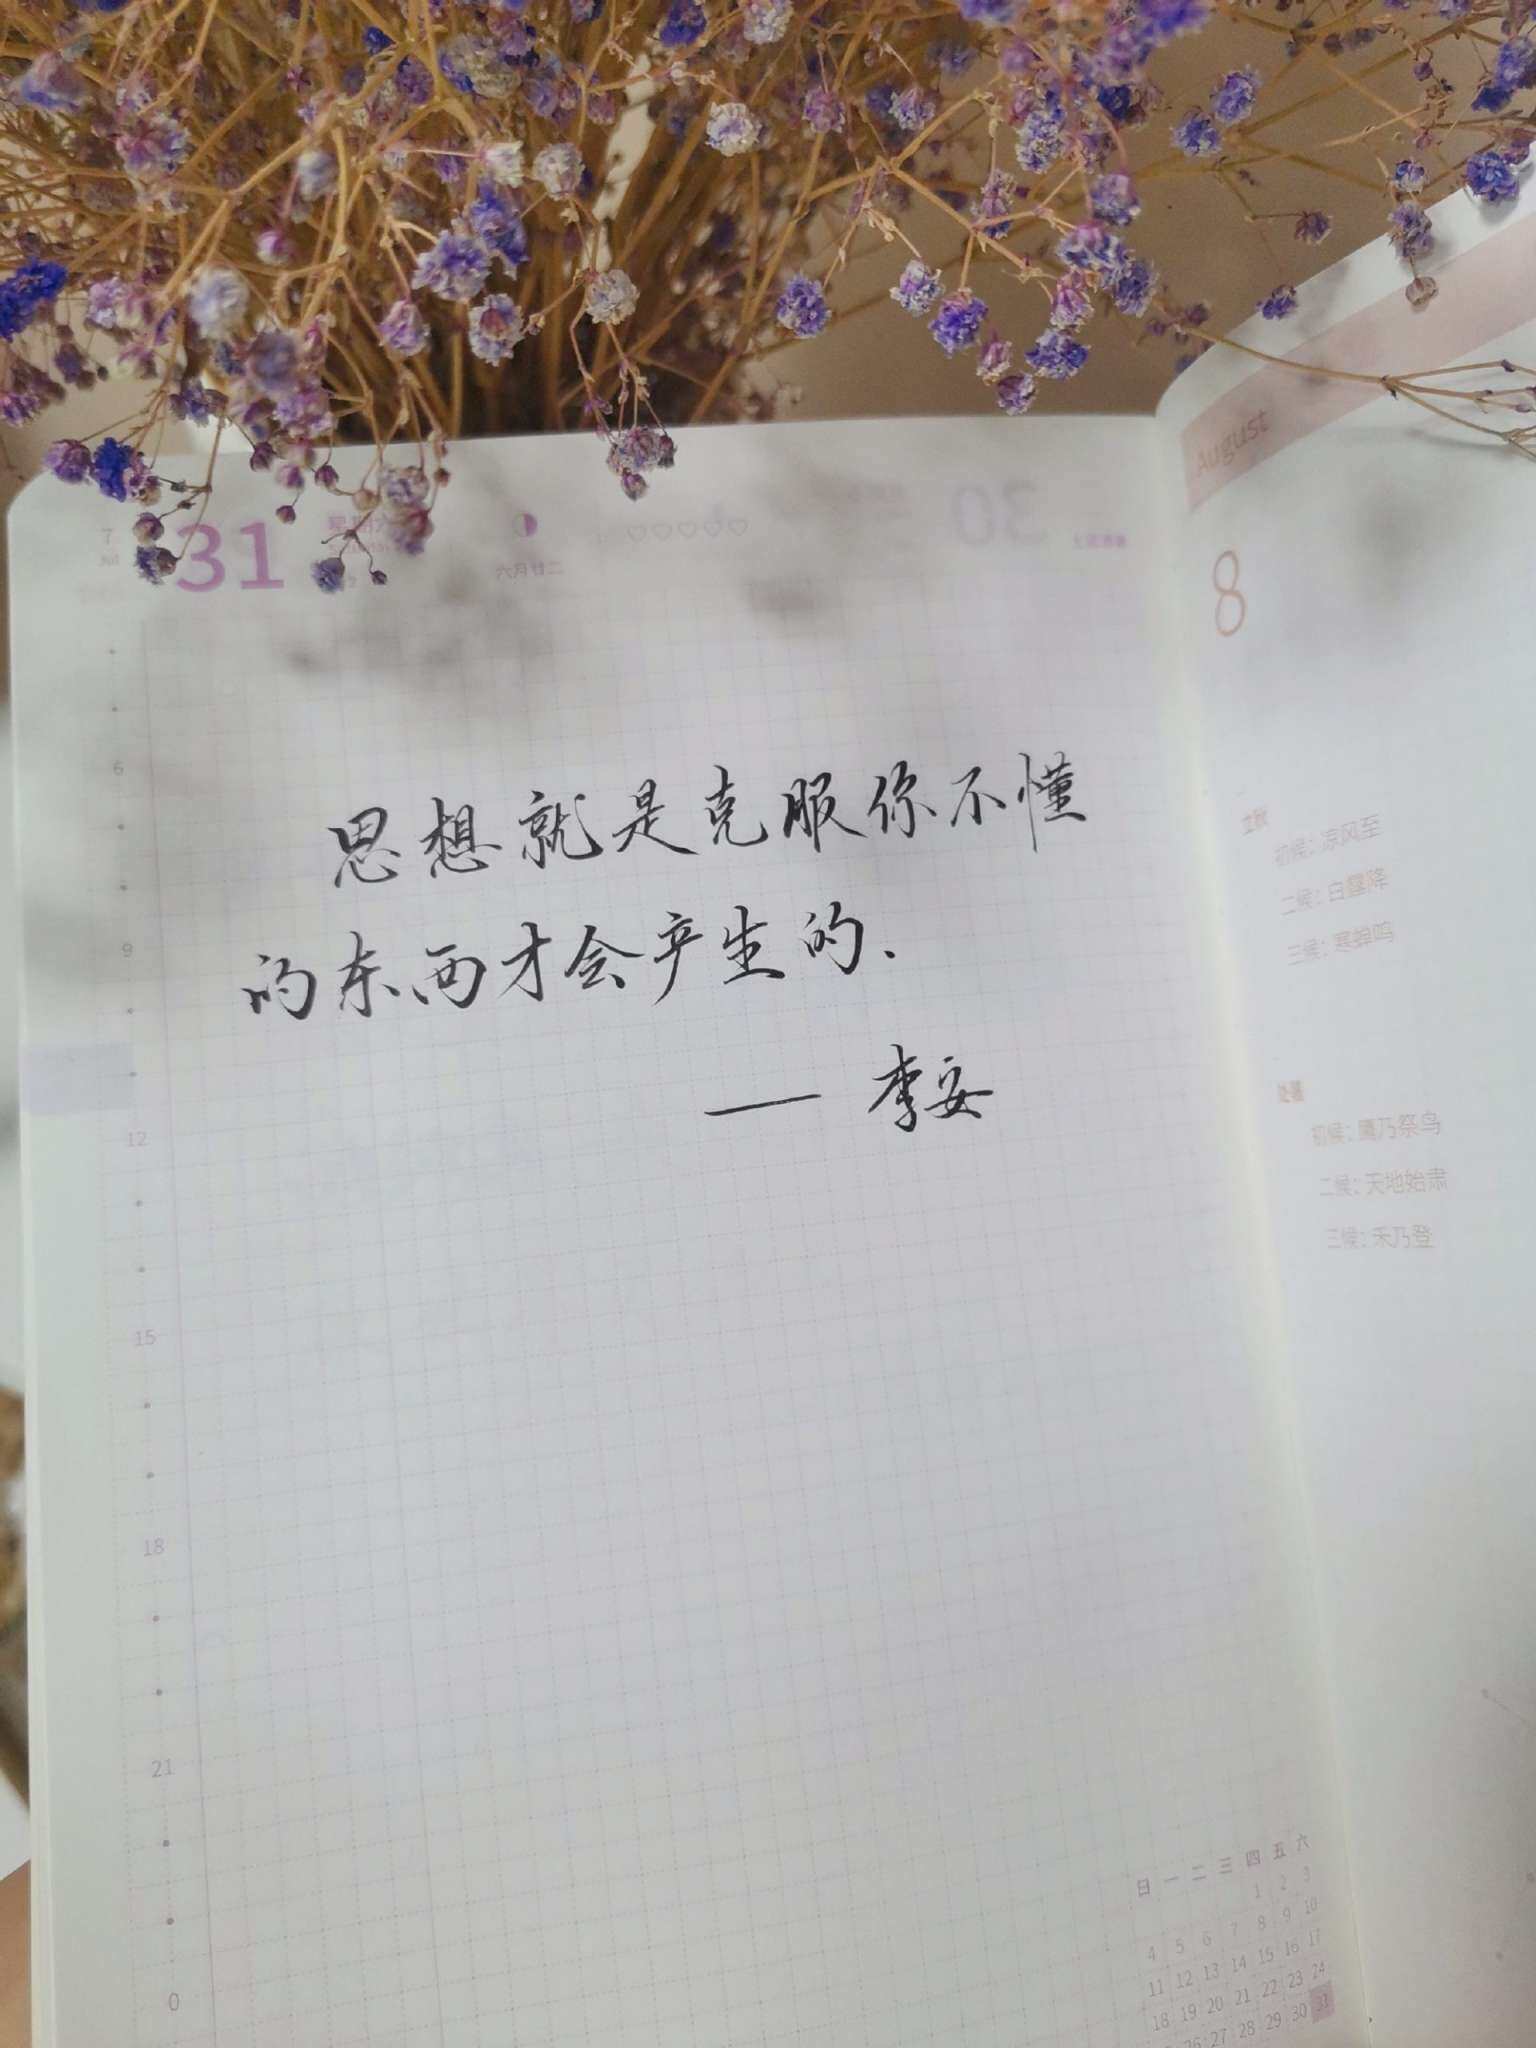 7
Jul
31
星期六
六月廿二
30
思想就是克服你不懂
的东西才会产生的.
—— 李安
6
9
12
15
18
21
0
日 一 二 三 四 五 六
1 2 3
4 5 6 7 8 9 10
11 12 13 14 15 16 17
18 19 20 21 22 23 24
26 27 28 29 30 31
August
8
立秋
初候：凉风至
二候：白露降
三候：寒蝉鸣
处暑
初候：鹰乃祭鸟
二候：天地始肃
三候：禾乃登